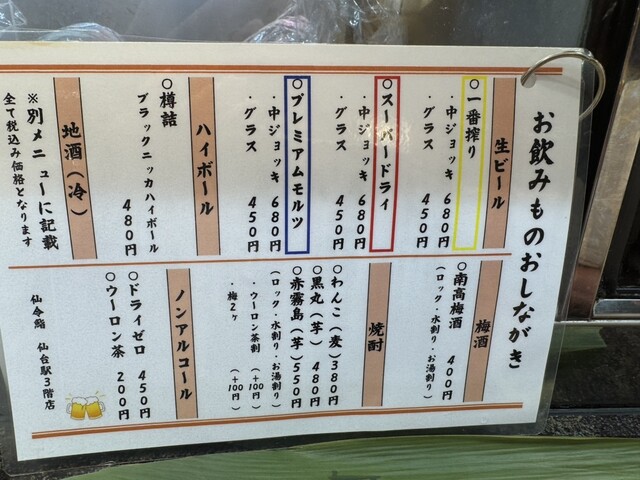 お飲みものおしながき
生ビール
○一番搾り
・中ジョッキ 680円
・グラス 450円
○スーパードライ
・中ジョッキ 680円
・グラス 450円
○プレミアムモルツ
・中ジョッキ 680円
・グラス 450円
ハイボール
○樽詰
ブラックニッカハイボール
480円
地酒(冷)
※別メニューに記載
全て税込み価格となります
梅酒
○南高梅酒 400円
(ロック・水割り・お湯割り)
焼酎
○わんこ(麦)380円
○黒丸(芋)480円
○赤霧島(芋)550円
(ロック・水割り・お湯割り)
・ウーロン茶割(+100円)
・梅2ヶ(+100円)
ノンアルコール
○ドライゼロ 450円
○ウーロン茶 200円
仙令鮨 仙台駅3階店